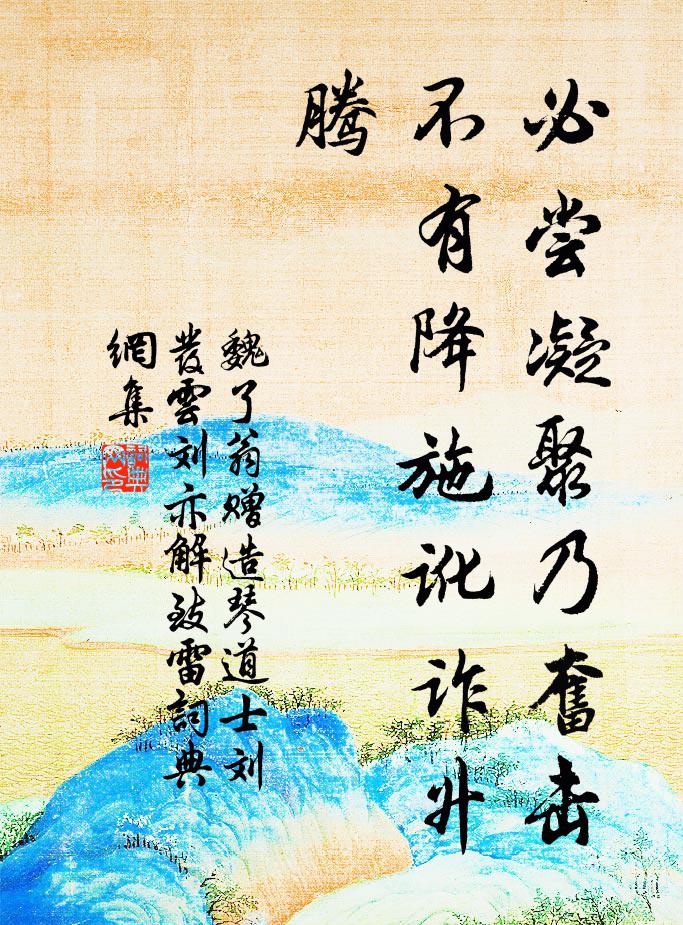 必尝凝聚乃奮击
不有降施讹诈升
腾
魏了翁赠造琴道士刘
發雲刘亦解致雷詞典
網集